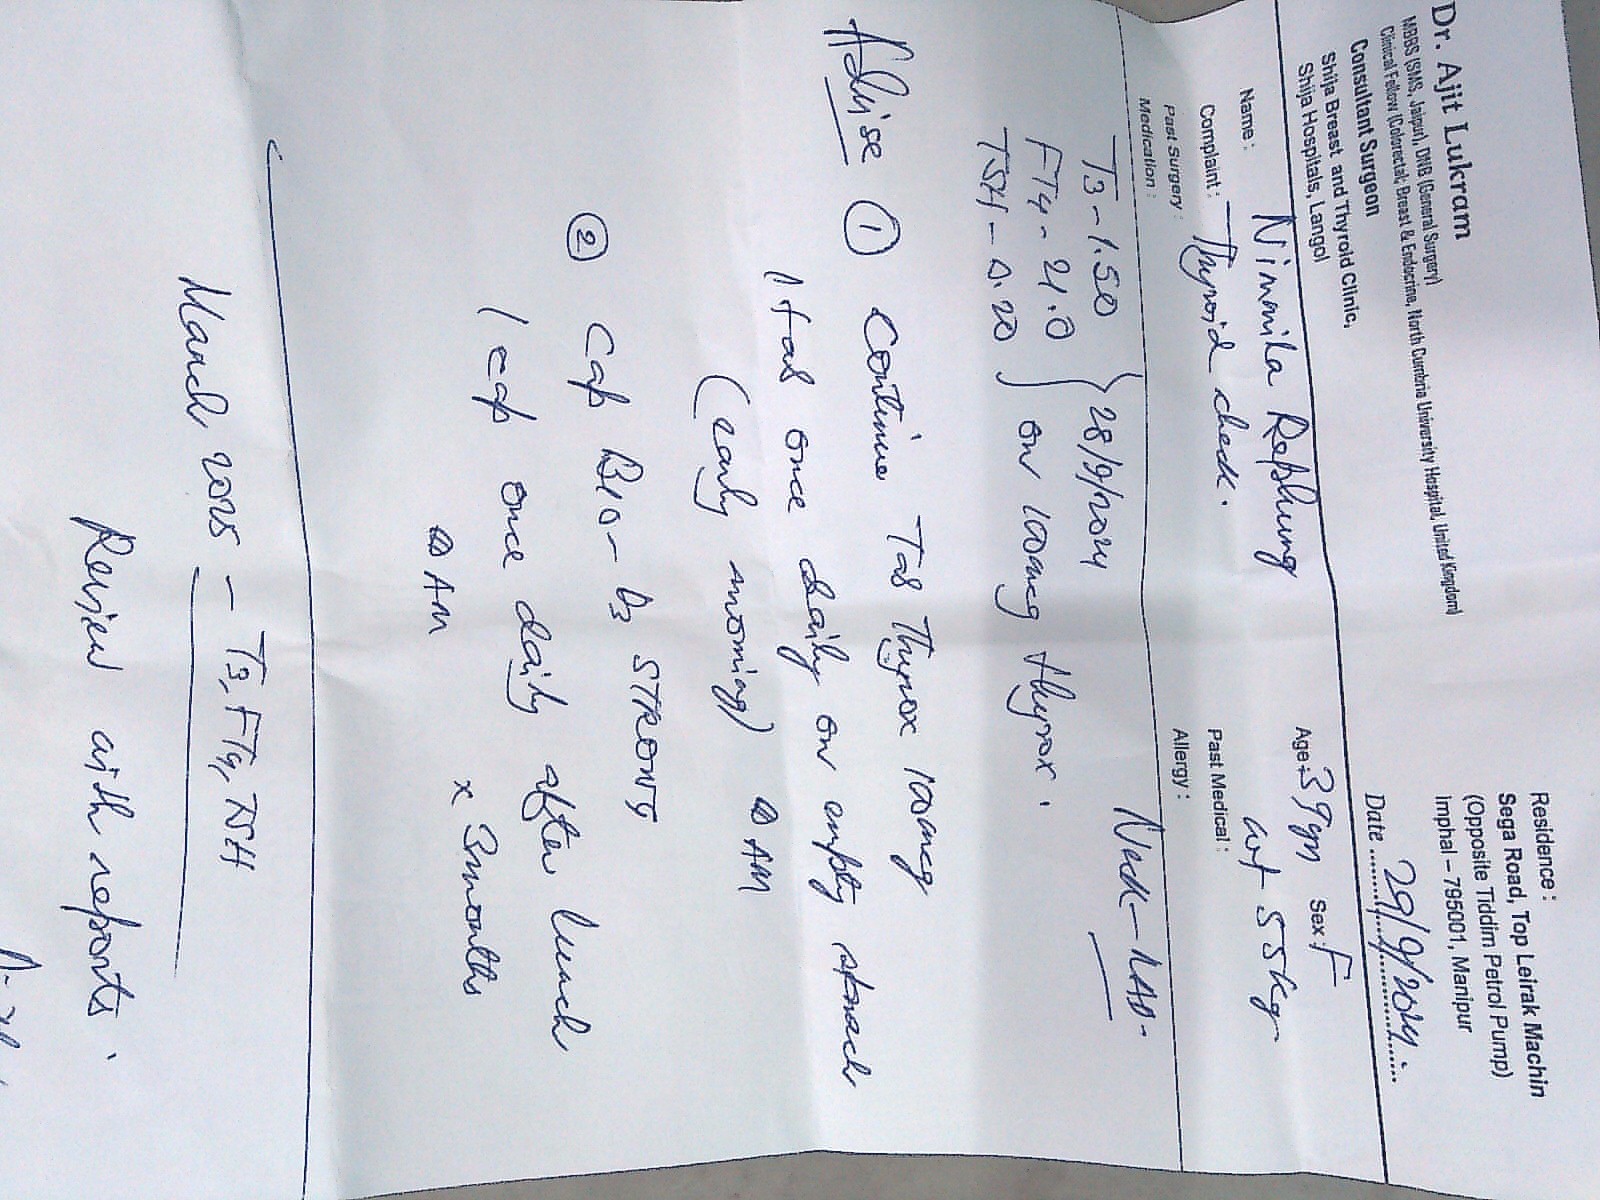 Dr. Ajit Lukram
MBBS (SMS, Jaipur), DNB (General Surgery)
Clinical Fellow (Colorectal, Breast & Endocrine, North Cumbria University Hospital, United Kingdom)
Consultant Surgeon
Shija Breast and Thyroid Clinic,
Shija Hospitals, Langol
Residence :
Sega Road, Top Leirak Machin
(Opposite Tiddim Petrol Pump)
Imphal – 795001, Manipur
Date 29/9/2024
Name : Age : 39 yrs Sex : F
Complaint : Thyroid check. wt 55kg
Past Medical :
Past Surgery : Allergy :
Medication :
Neck - NAD.
T3 - 1.50 } 28/9/2024
FT4 - 21.0
TSH - 0.20 } on 100mcg thyrox.
Advise ① Continue Tab Thyrox 100mcg
1 tab once daily on empty stomach
(early morning)
② Cap BIO-D3 STRONG
1 cap once daily after lunch
x 3months
March 2025 - T3, FT4, TSH
Review with reports.